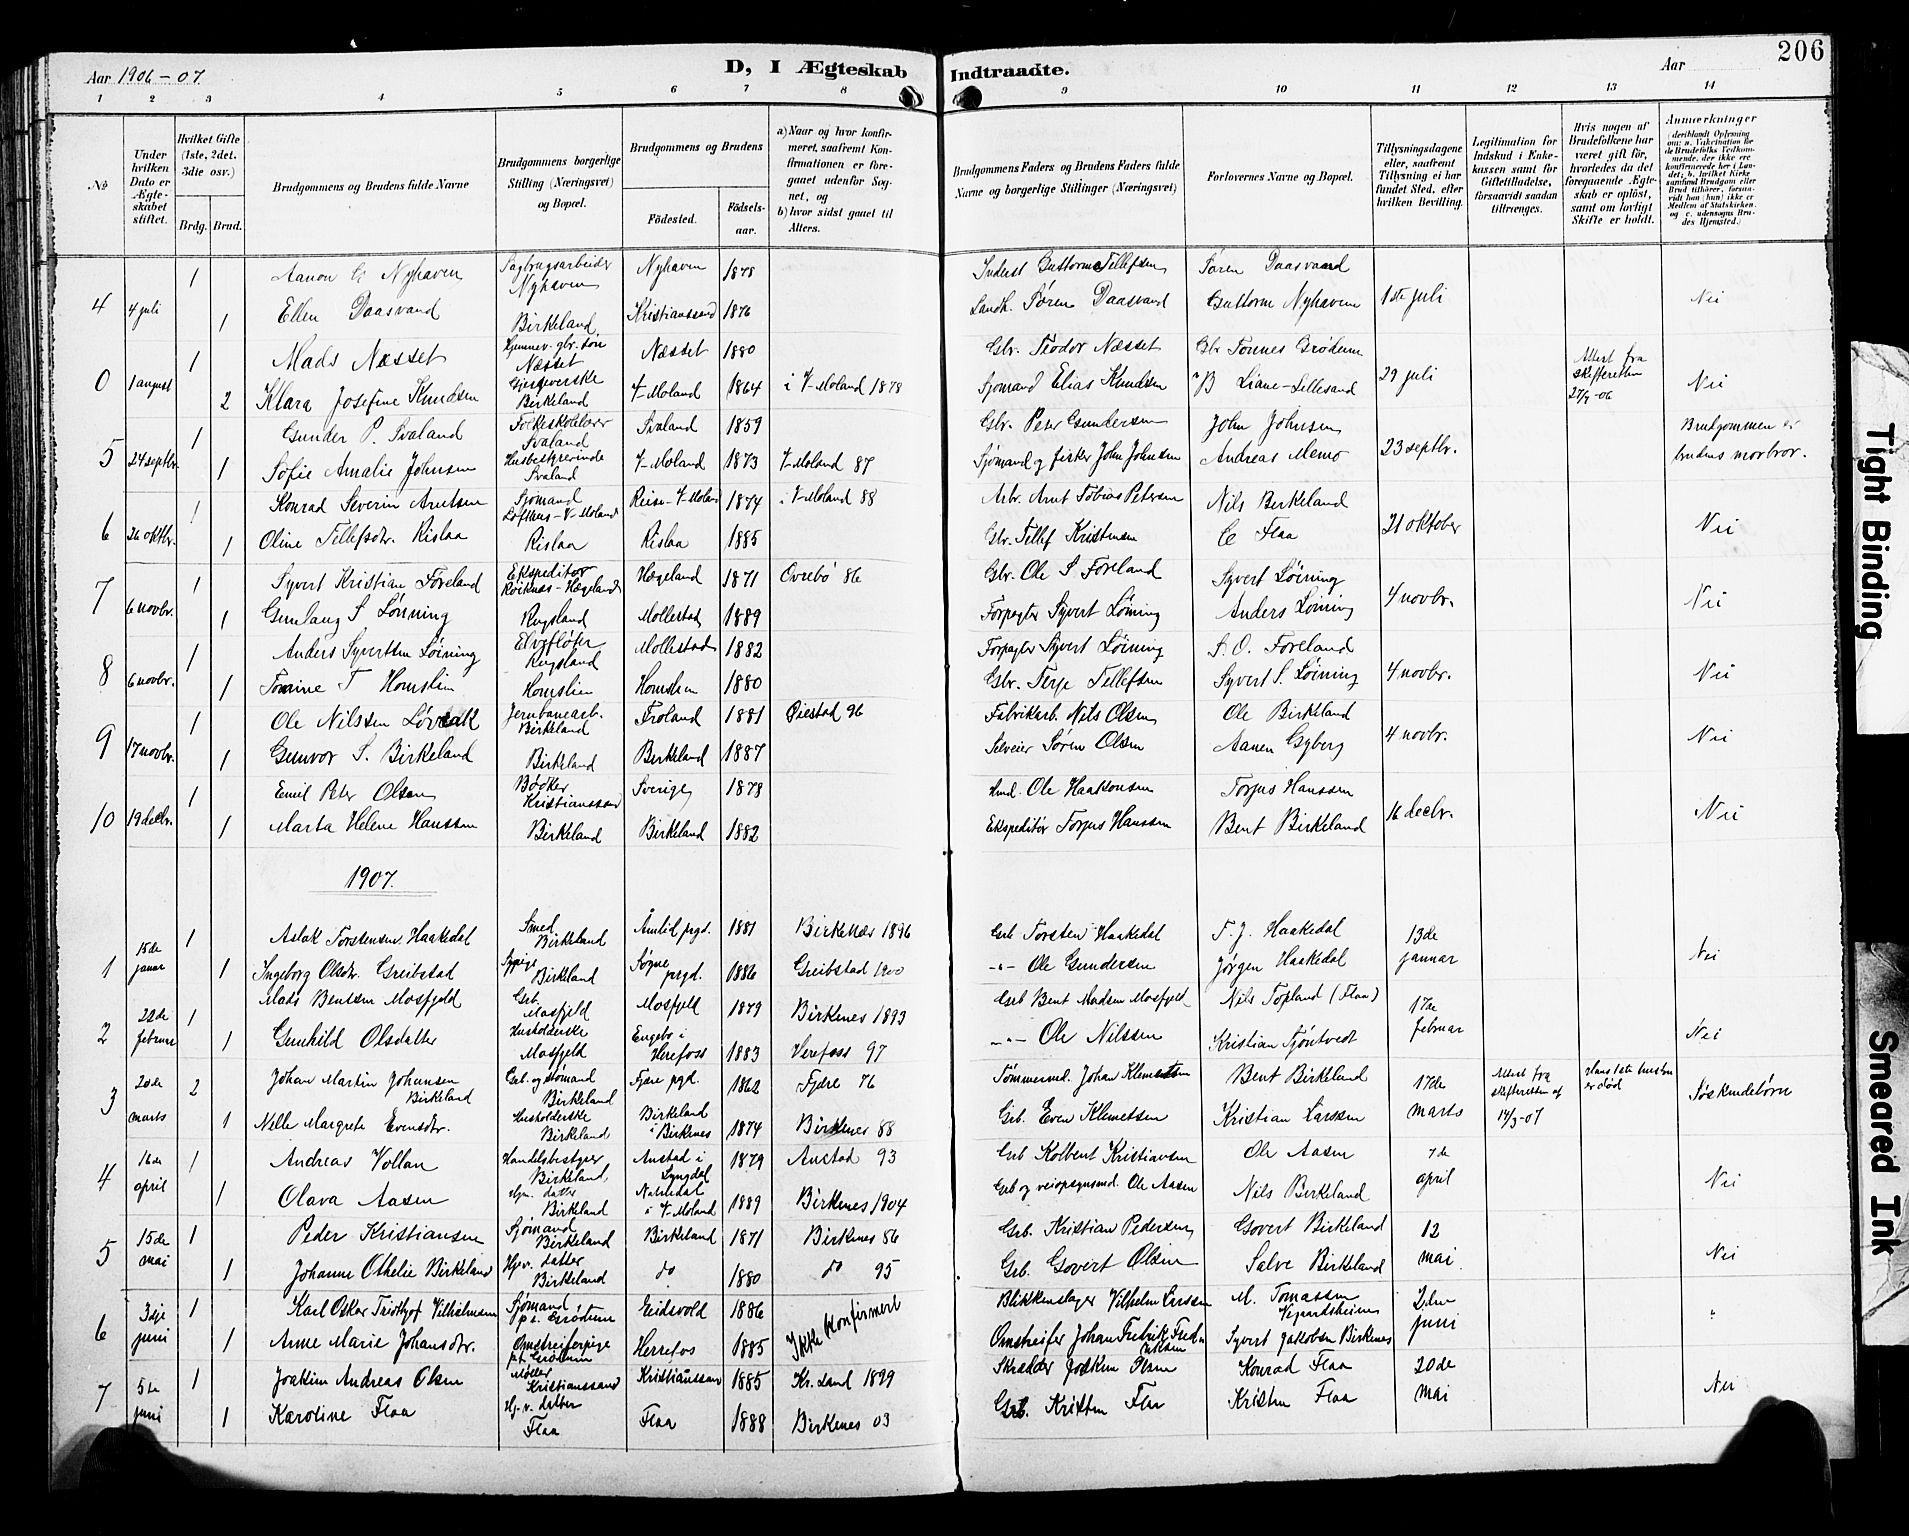 206
Aar 1906-07. D, I Ægteskab Indtraadte. Aar
1 2 3 4 5 6 7 8 9 10 11 12 13 14
No
Under hvilken Dato er Ægte-skabet stiftet.
Hvilket Gifte (1ste, 2det, 3die osv.)
Brdg. Brud.
Brudgommens og Brudens fulde Navne
Brudgommens borgerlige Stilling (Næringsvei) og Bopæl.
Brudgommens og Brudens
Födested. Födsels-aar.
a) Naar og hvor konfir-meret, saafremt Kon-firmationen er fore-gaaet udenfor Sog-net, og
b) hvor sidst gaaet til Alters.
Brudgommens Faders og Brudens Faders fulde Navne og borgerlige Stillinger (Næringsvei)
Forlovernes Navne og Bopæl.
Tillysningsdagene eller, saafremt Tillysning ei har fundet Sted, efter hvilken Bevilling.
Legitimation for Indskud i Enke-kassen samt for Giftetilladelse, forsaavidt saadan tiltrænges.
Hvis nogen af Brudefolkene har været gift før, hvorledes da det foregaaende Ægte-skab er opløst, samt om lovligt Skifte er holdt.
Anmærkninger
4 4 juli 1 Aanon G Nyhaven Sagbrugsarbeider Nyhaven Nyhaven 1878 Inderst Guttorm Tellefsen Søren Daasvand 1ste juli Nei
1 Ellen Daasvand Birkeland Kristianssand 1876 Landh. Søren Daasvand Guttorm Nyhaven
0 1 august 1 Mads Næsset Hjemmev. gbr. søn Næsset Næsset 1880 Gbr. Tiodor Næsset Gbr Tønnes Grødum 29 juli Attest fra skifteretten 27/7-06 Nei
2 Klara Josefine Knudsen Gjestgiverske Birkeland V-Moland 1864 i V-Moland 1878 Sjømand Elias Knudsen B Liane-Lillesand
5 24 septbr. 1 Gunder P. Svaland Folkeskolelærer Svaland Svaland 1859 Gbr. Peter Gundersen John Johnsen 23 septbr. Brudgommen er brudens morbror.
1 Sofie Amalie Johnsen Husbestyrerinde Svaland V-Moland 1873 V-Moland 87 Sjømand og fisker John Johnsen Andreas Memo
6 26 oktbr. 1 Konrad Severin Arntsen Sjømand Lofthus-V-Moland V-Moland 1874 i V-Moland 88 Arb. Arnt Tobias Petersen Nils Birkeland 21 oktober Nei
1 Oline Tellefsdtr. Rislaa Rislaa Rislaa 1885 Gbr. Tellef Kristensen C Flaa
7 6 novbr. 1 Syvert Kristian Føreland Ekspeditør Røiknæs-Hægeland Hægeland 1871 Øvrebø 86 Gbr. Ole S Føreland Syvert Løining 4 novbr. Nei
1 Gunlaug S Lønning Rugsland Mollestad 1889 Forpagter Syvert Løining Anders Løining
8 6 novbr. 1 Anders Syvertsen Løining Elvefløter Rugsland Mollestad 1882 Forpagter Syvert Løining S. O. Føreland 4 novbr. Nei
1 Tomine T Homslien Homslien Homslien 1880 Gbr. Terje Tellefsen Syvert S. Løining
9 17 novbr. 1 Ole Nilssen Jernbanearb. Birkeland Froland 1881 Øiestad 96 Fabrikarb. Nils Olsen Ole Birkeland 4 novbr. Nei
1 Gunvor S. Birkeland Birkeland Birkeland 1887 Selveier Søren Olsen Aanen Gyberg
10 19 decbr. 1 Emil Peter Olsen Bødker Kristianssand Sverige 1878 Ole Haakonsen Torjus Hanssen 16 decbr. Nei
1 Marta Helene Hanssen Birkeland Birkeland 1882 Ekspeditør Torjus Hanssen Bent Birkeland
1907.
1 15de januar 1 Aslak Torstensen Haakedal Smed Birkeland Åmlid prgd. 1881 Birkenæs 1896 Grb Torsten Haakedal T. J. Haakedal 13de januar Nei
1 Ingeborg Olsdtr. Greibstad Sypige Birkeland Søgne prgd. 1886 Greibstad 1900 -"- Ole Gundersen Jørgen Haakedal
2 22de februar 1 Mads Bentsen Mosfjeld Grb. Mosfjeld Mosfjeld 1879 Birkenes 1893 Grb Bent Madsen Mosfjeld Nils Topland (Flaa) 17de februar Nei
1 Gunhild Olsdatter Husholderske Mosfjeld Engebø i Herefoss 1883 Herefoss 97 -"- Ole Nilssen Kristian Tjøntvedt
3 20de marts 2 Johan Martin Johansen Birkeland Grb. og sømand Birkeland Fjære pgd. 1862 Fjære 76 Tømmermd. Johan Klemetsen Bent Birkeland 17de marts Attest fra skifteretten af 14/3-07 Hans 1ste hustru er død Søskendebørn
1 Nelle Margrete Evensdtr. Husholderske Birkeland Birkeland i Birkenes 1874 Birkenes 88 Grb. Even Klemetsen Kristian Larssen
4 16de april 1 Andreas Vollan Handelsbestyrer Birkeland Anstad i Lyngdal 1879 Anstad 93 Grb Kolbent Kristiansen Ole Aasen 7de april Nei
1 Olava Aasen Hjm. datter Birkeland i V-Moland 1889 Birkenes 1904 Grb og veiopsynsmd. Ole Aasen Nils Birkeland
5 15de mai 1 Peder Kristiansen Sjømand Birkeland Birkeland 1871 Birkenes 86 Grb. Kristian Pedersen Govert Birkeland 12 mai Nei
1 Johanne Othelie Birkeland Hjv. datter Birkeland do 1880 do 95 Grb. Govert Olsen Salve Birkeland
6 3dje juni 1 Karl Oskar Triothjof Vilhelmsen Sjømand p.t. Grødum Eidsvold 1886 Ikke Konfirmert Blikkenslager Vilhelm Larssen M. Tomassen Vegaardsheien 2den juni "
1 Anne Marie Johansdtr. Omstreiferpige pt. Grødum Herrefos 1885 Omstreifer Johan Fredrik Fredriksen Syvert Jakobsen Birkenes
7 5te juni 1 Joakim Andreas Olsen Møller Kristianssand Kristianssan 1885 Kr.sand 1899 Skrædder Joakim Olsen Konrad Flaa 20de mai Nei
1 Karoline Flaa Hj. v. datter Flaa Flaa 1888 Birkenes 03 Grb. Kristen Flaa Kristen Flaa
Tight Binding
Smeared Ink